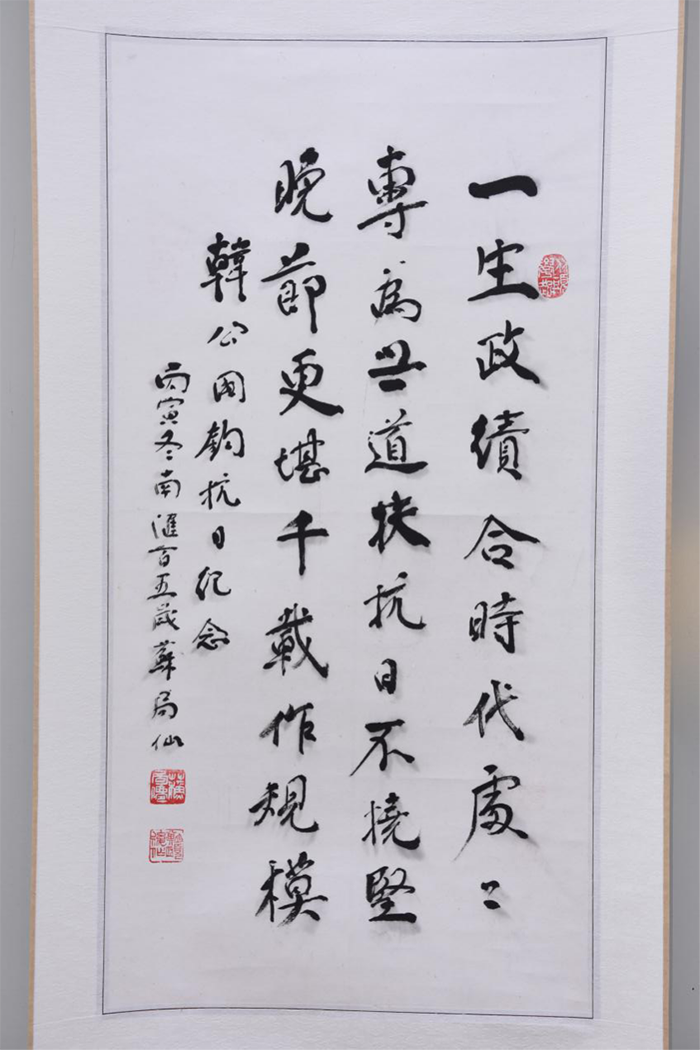 一生政績合時代處〻
專為世道扶抗日不撓堅
晚節更堪千載作規模
韓公國鈞抗日纪念
丙寅冬南滙百五歲蘇局仙